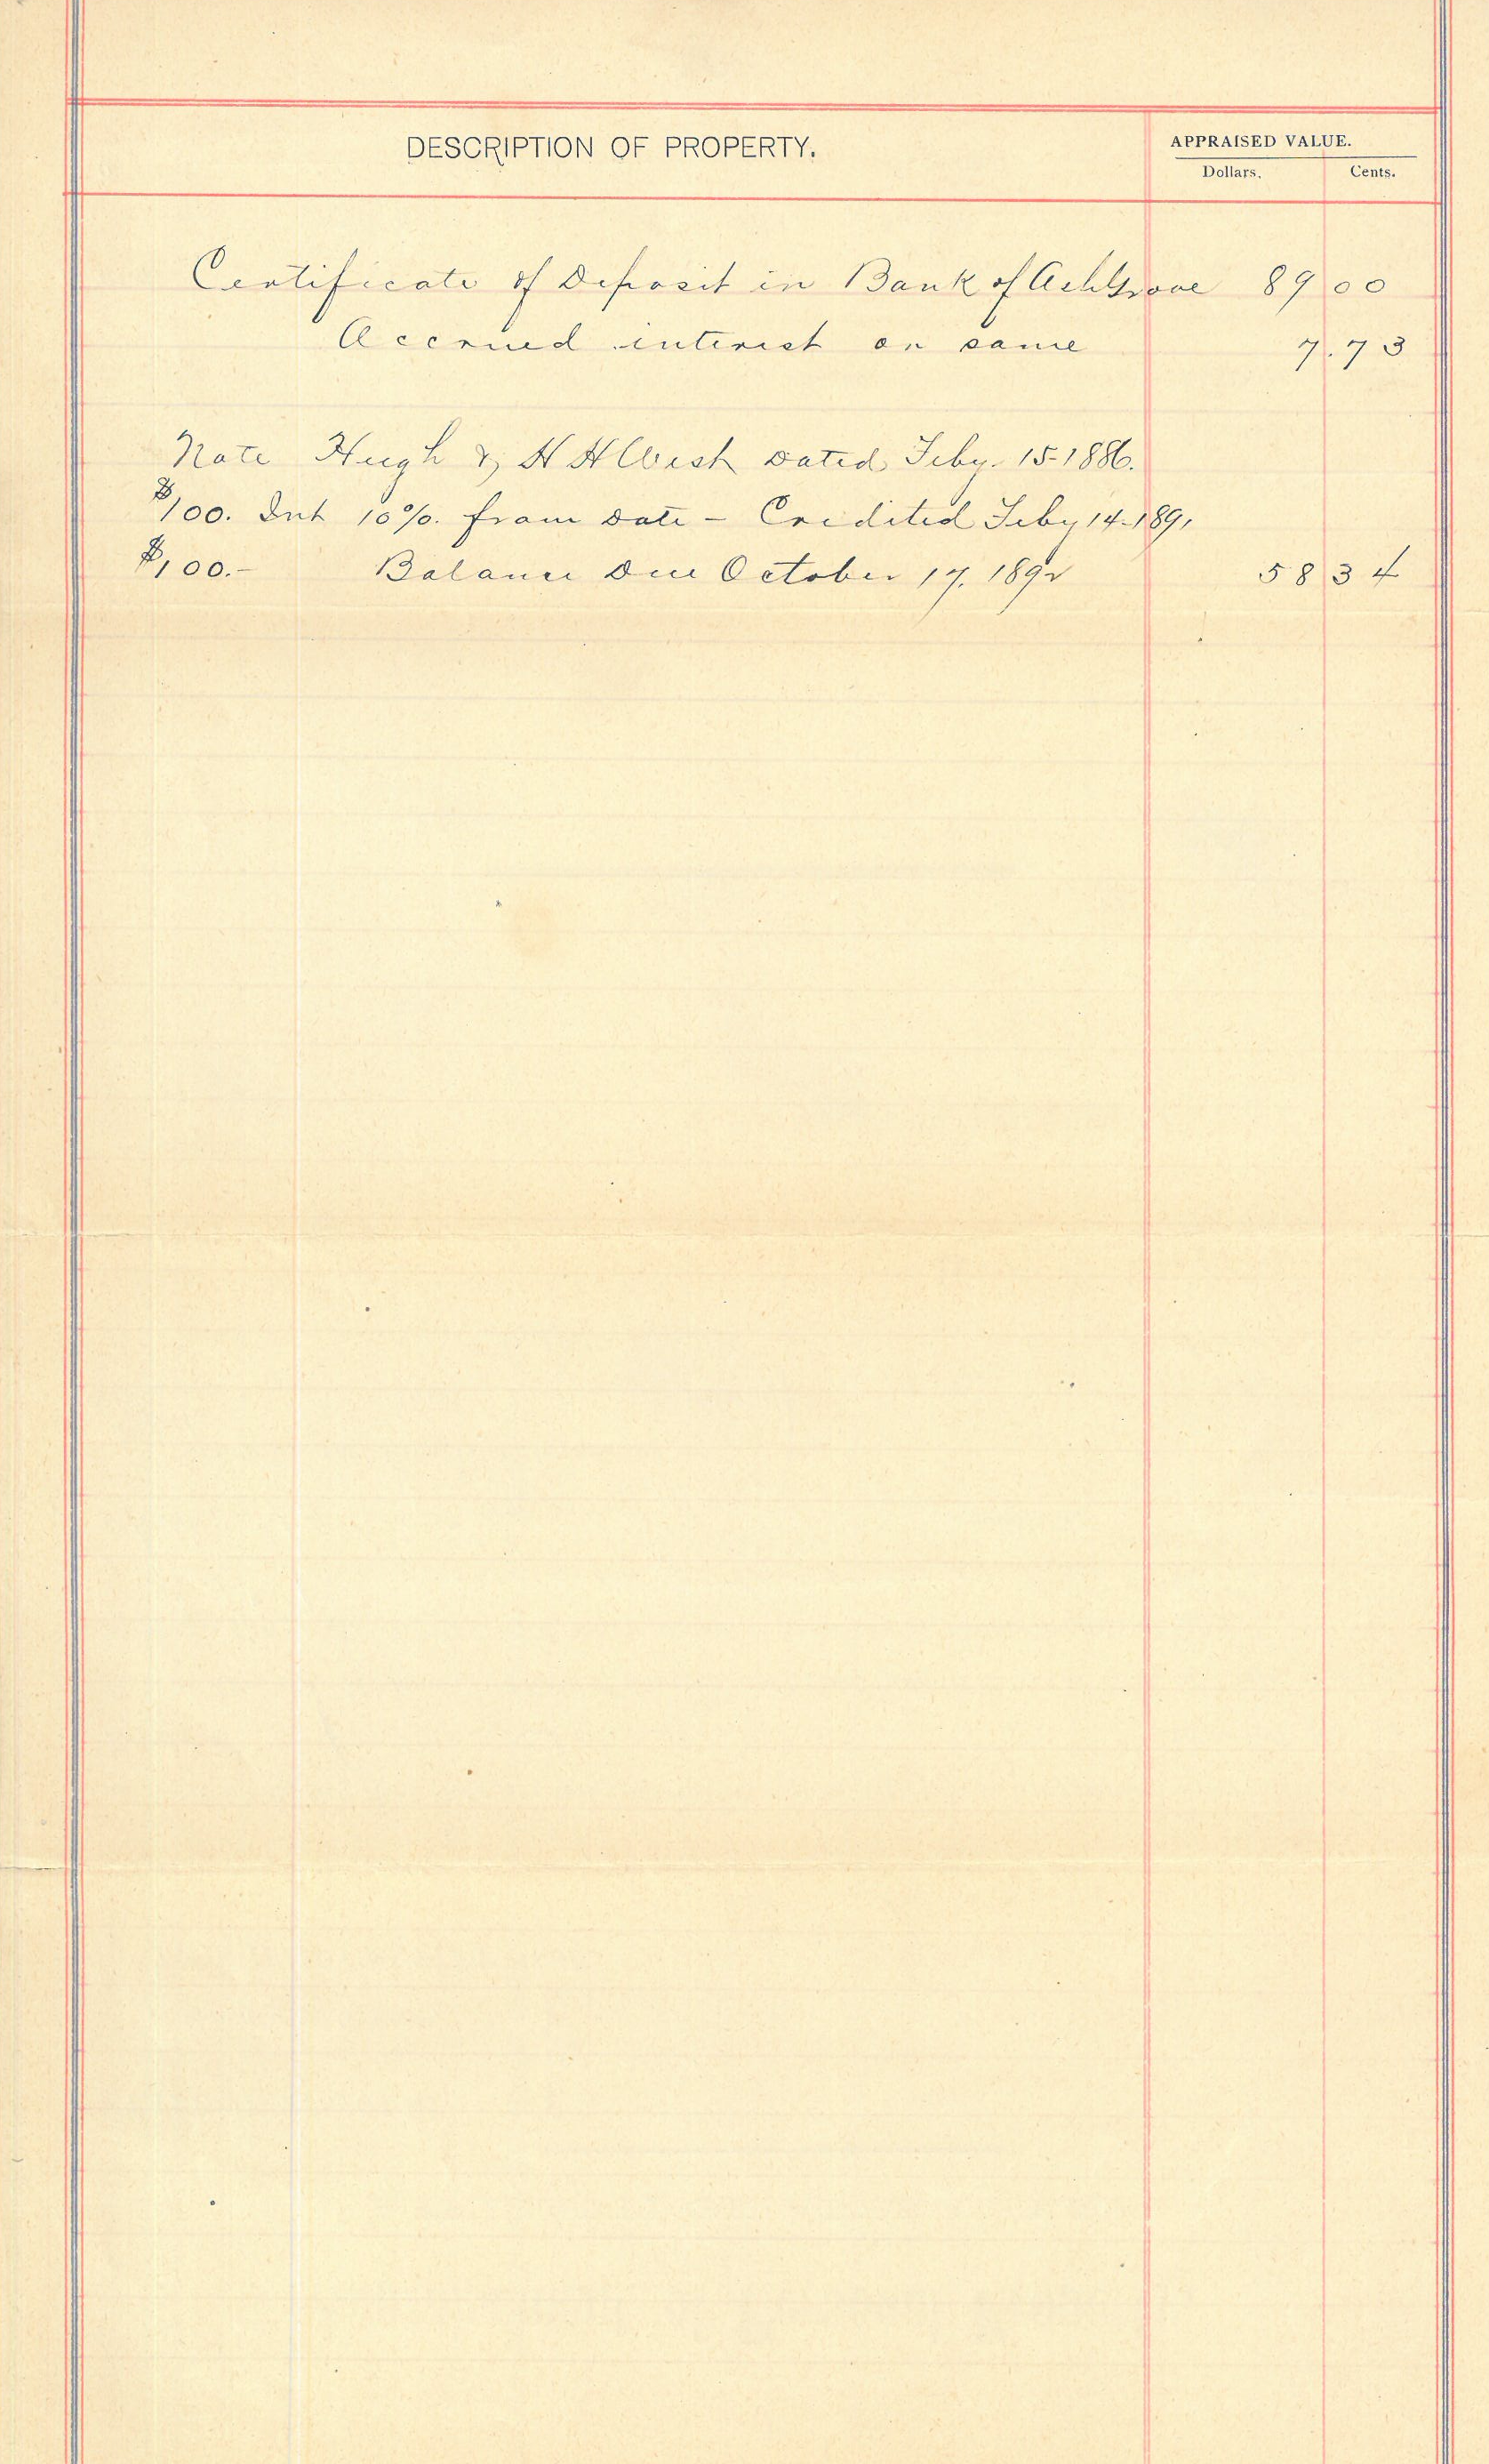 DESCRIPTION OF PROPERTY.
APPRAISED VALUE.
Dollars. Cents.
Certificate of Deposit in Bank of 89 00
Accrued interest on same 7.73
Note Hugh & H H dated Feby. 15. 1886.
$100. Int 10%. from date – Credited Feby 14. 1891
$100.– Balance due October 17. 1892 58 34